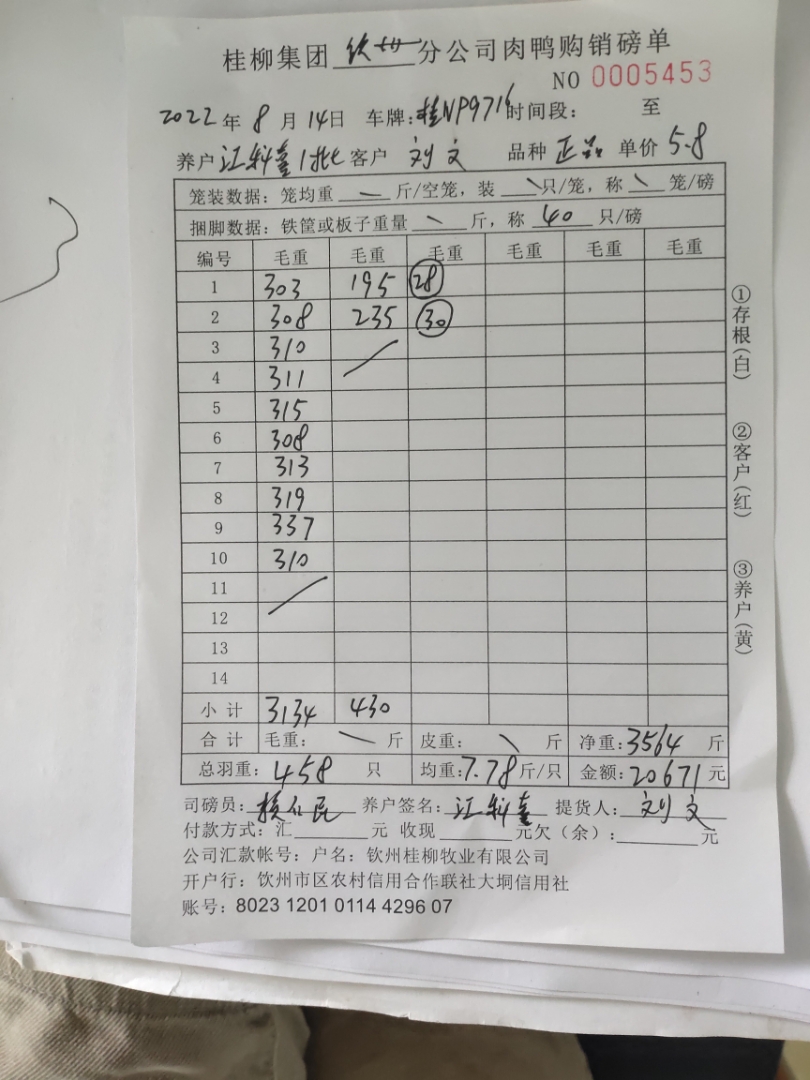 桂柳集团 钦州 分公司肉鸭购销磅单
NO 0005453
2022 年 8 月 14日 车牌:桂NP9716 时间段: 至
养户 江斜鑫1批 客户 刘文 品种 正品 单价 5.8
笼装数据:笼均重 — 斤/空笼,装 \ 只/笼,称 \ 笼/磅
捆脚数据:铁筐或板子重量 \ 斤,称 40 只/磅
编号 毛重 毛重 毛重 毛重 毛重 毛重
1 303 195 28
2 308 235 30
3 310
4 311
5 315
6 308
7 313
8 319
9 337
10 310
11
12
13
14
小计 3134 430
合计 毛重: \ 斤 皮重: \ 斤 净重:3564 斤
总羽重:458 只 均重:7.78斤/只 金额:20671元
司磅员: 养户签名: 江斜鑫 提货人: 刘文
付款方式:汇 元 收现 元欠(余): 元
公司汇款帐号:户名:钦州桂柳牧业有限公司
开户行:饮州市区农村信用合作联社大垌信用社
账号:8023 1201 0114 4296 07
①存根(白)
②客户(红)
③养户(黄)